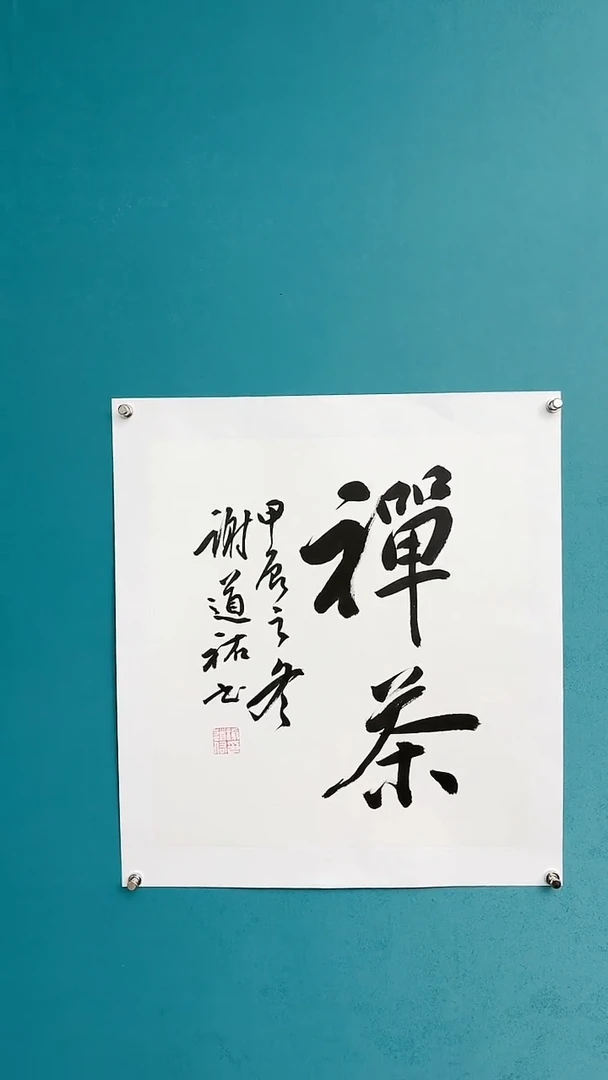 禪茶
甲辰之冬
謝道祐书